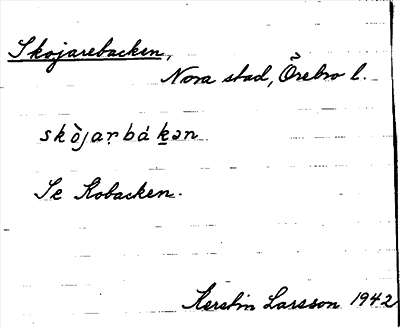 Skojarebacken,
Nora stad, Örebro l.
skòjaṛbákən
Se Kobacken.
Kerstin Larsson 1942